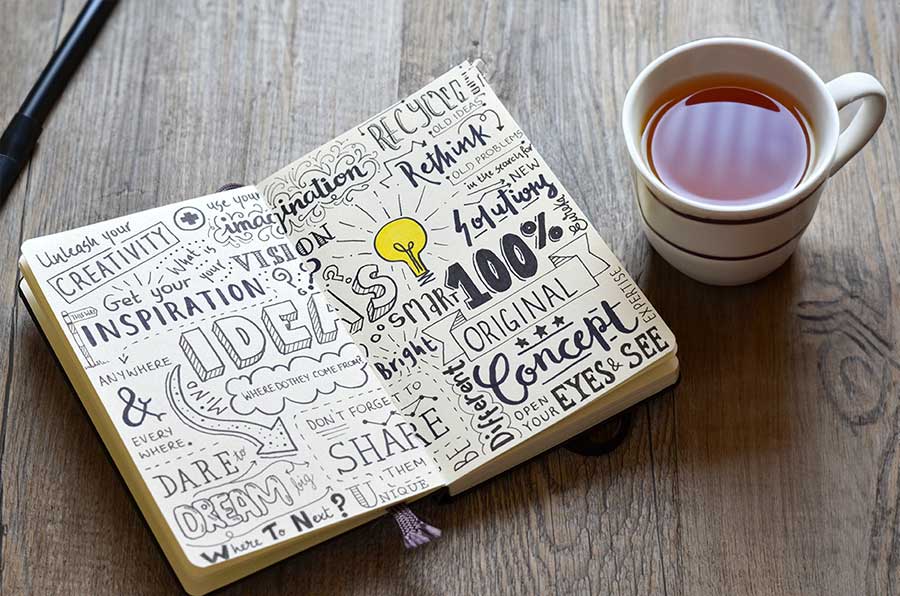 Unleash your
CREATIVITY
+ use your
imagination
What's
your
VISION
?
Get your
THIS WAY
INSPIRATION?
IDEA'S
ANYWHERE
&
EVERY
WHERE.
WHERE DO THEY COME FROM?
DON'T FORGET
to
SHARE
THEM
DARE to
DREAM big
Where To Next?
UNIQUE
RECYCLE
OLD IDEAS
Rethink
OLD PROBLEMS
in the search for
NEW
Solutions
SMART
100%
ORIGINAL
Bright
Concept
BE
Different
OPEN
YOUR
EYES & SEE
EXPERTISE